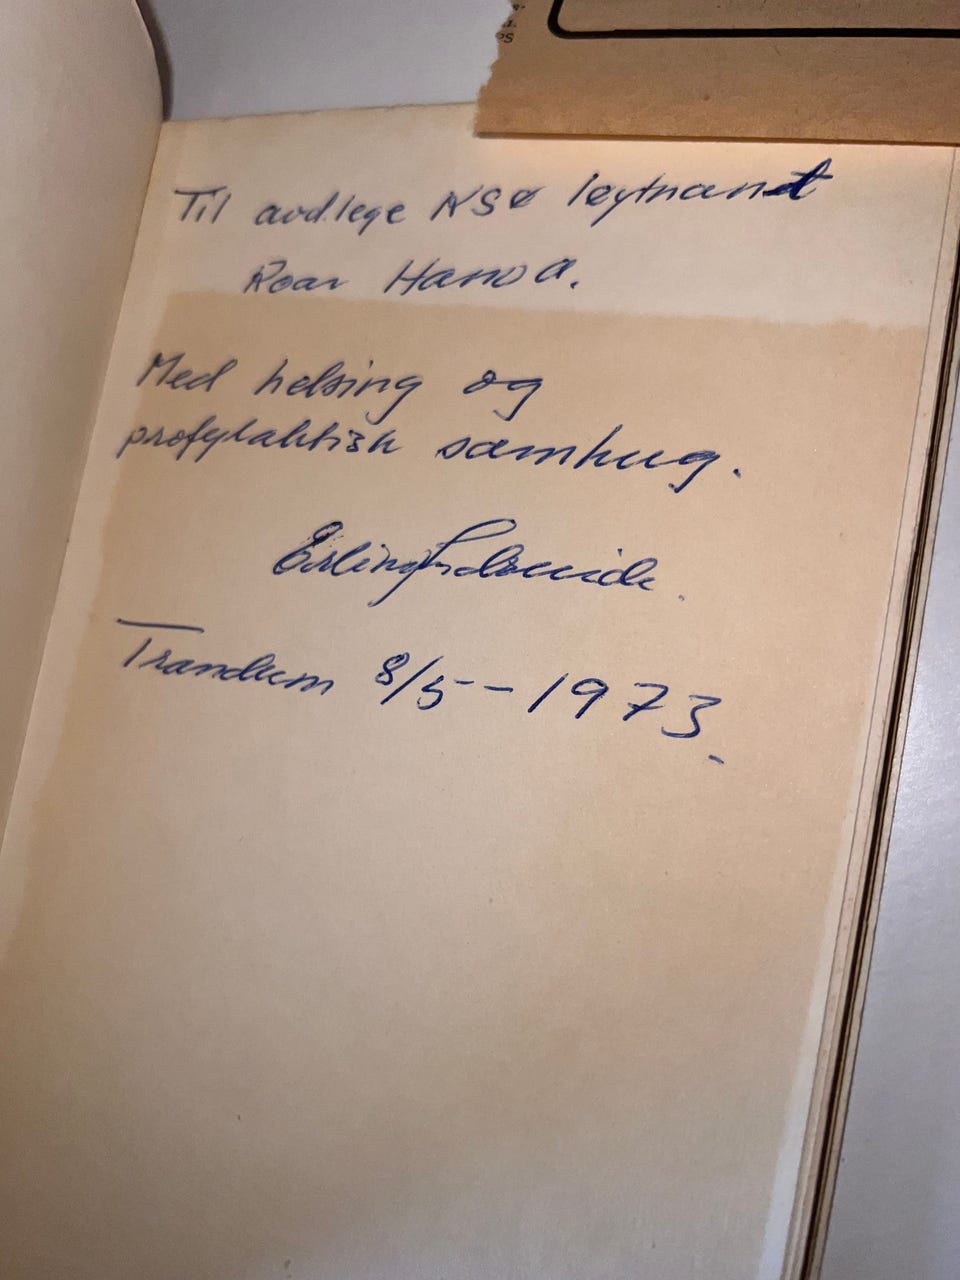 Til avd.lege NSØ løytnant
Roar Hanoa.
Med helsing og
profylaktisk samhug.
Erling
Trandum 8/5-1973.